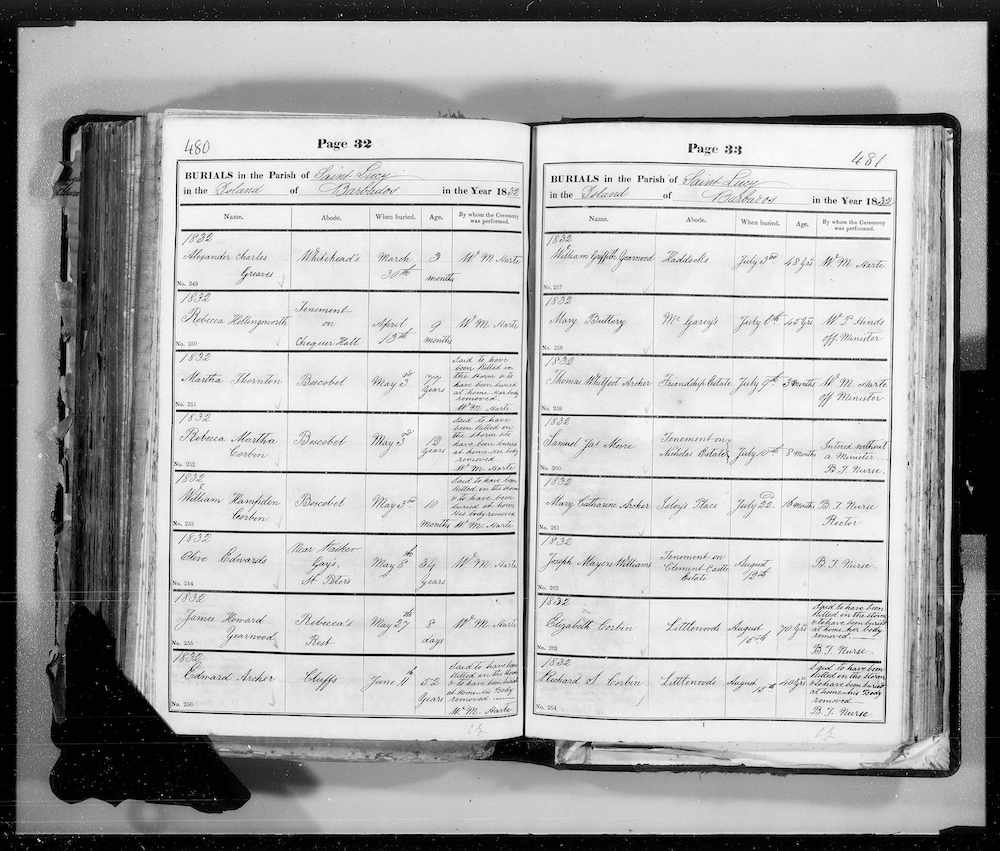 480
Page 32
BURIALS in the Parish of Saint Lucy
in the Island of Barbados in the Year 1832
Name. Abode. When buried. Age. By whom the Ceremony was performed.
1832
Alexander Charles Whitehead's March 3 Wm M. Harte
Greaves 30th months
No. 249
1832
Rebecca Hollingsworth Tenement on Chequer Hall April 13th 9 months Wm M. Harte
No. 250
1832
Martha Thornton Boscobel May 3rd Years
Said to have
been killed in
the storm & to
have been buried
at home. Her body
removed.
Wm M. Harte
No. 251
1832
Rebecca Martha Corbin Boscobel May 3rd 13 Years
Said to have
been killed in
the storm &to
have been buried
at home. Her body
removed
Wm M. Harte
No. 252
1832
William Hampden Corbin Boscobel May 3rd 10 months
Said to have been
killed in the storm
& to have been
buried at home
His body removed
Wm M. Harte
No. 253
1832
Clive Edwards Near Gays, St Peters May 8th 34 Years Wm M. Harte
No. 254
1832
James Howard Yearwood Rebecca's Rest May 27th 8 days Wm M. Harte
No. 255
1832
Edward Archer Cluffs June 11th 52 Years
Said to have been
killed in the storm
& to have been buried
at home his Body
removed
Wm M. Harte
No. 256
481
Page 33
BURIALS in the Parish of Saint Lucy
in the Island of Barbados in the Year 1832
Name. Abode. When buried. Age. By whom the Ceremony was performed.
1832
William Griffith Yearwood Haddocks July 3rd 48 Yrs Wm M. Harte
No. 257
1832
Mary Buttery Mc Garey's July 6th 45 Yrs Wm P. Hinds
off Minister
No. 258
1832
Thomas Whitfoot Archer Friendship Estate July 9th 3 months Wm M. Harte
off Minister
No. 259
1832
Samuel Jas Moore Tenement on Nicholas Estate July 10th 8 months Intered without
a Minister
B. T. Nurse
No. 260
1832
Mary Catharine Archer Place July 22 16 months B. T. Nurse
Rector
No. 261
1832
Joseph Mayers Williams Tenement on Clement Castle Estate August 12th B. T. Nurse
No. 262
1832
Elizabeth Corbin Littlewoods August 15th 70 Yrs
Said to have been
killed in the storm
& to have been buried
at home, her body
removed
B. T. Nurse
No. 263
1832
Richard S. Corbin Littlewoods August 15th 40 Yrs
Said to have been
killed in the storm
& to have been buried
at home his Body
removed
B. T. Nurse
No. 264
1